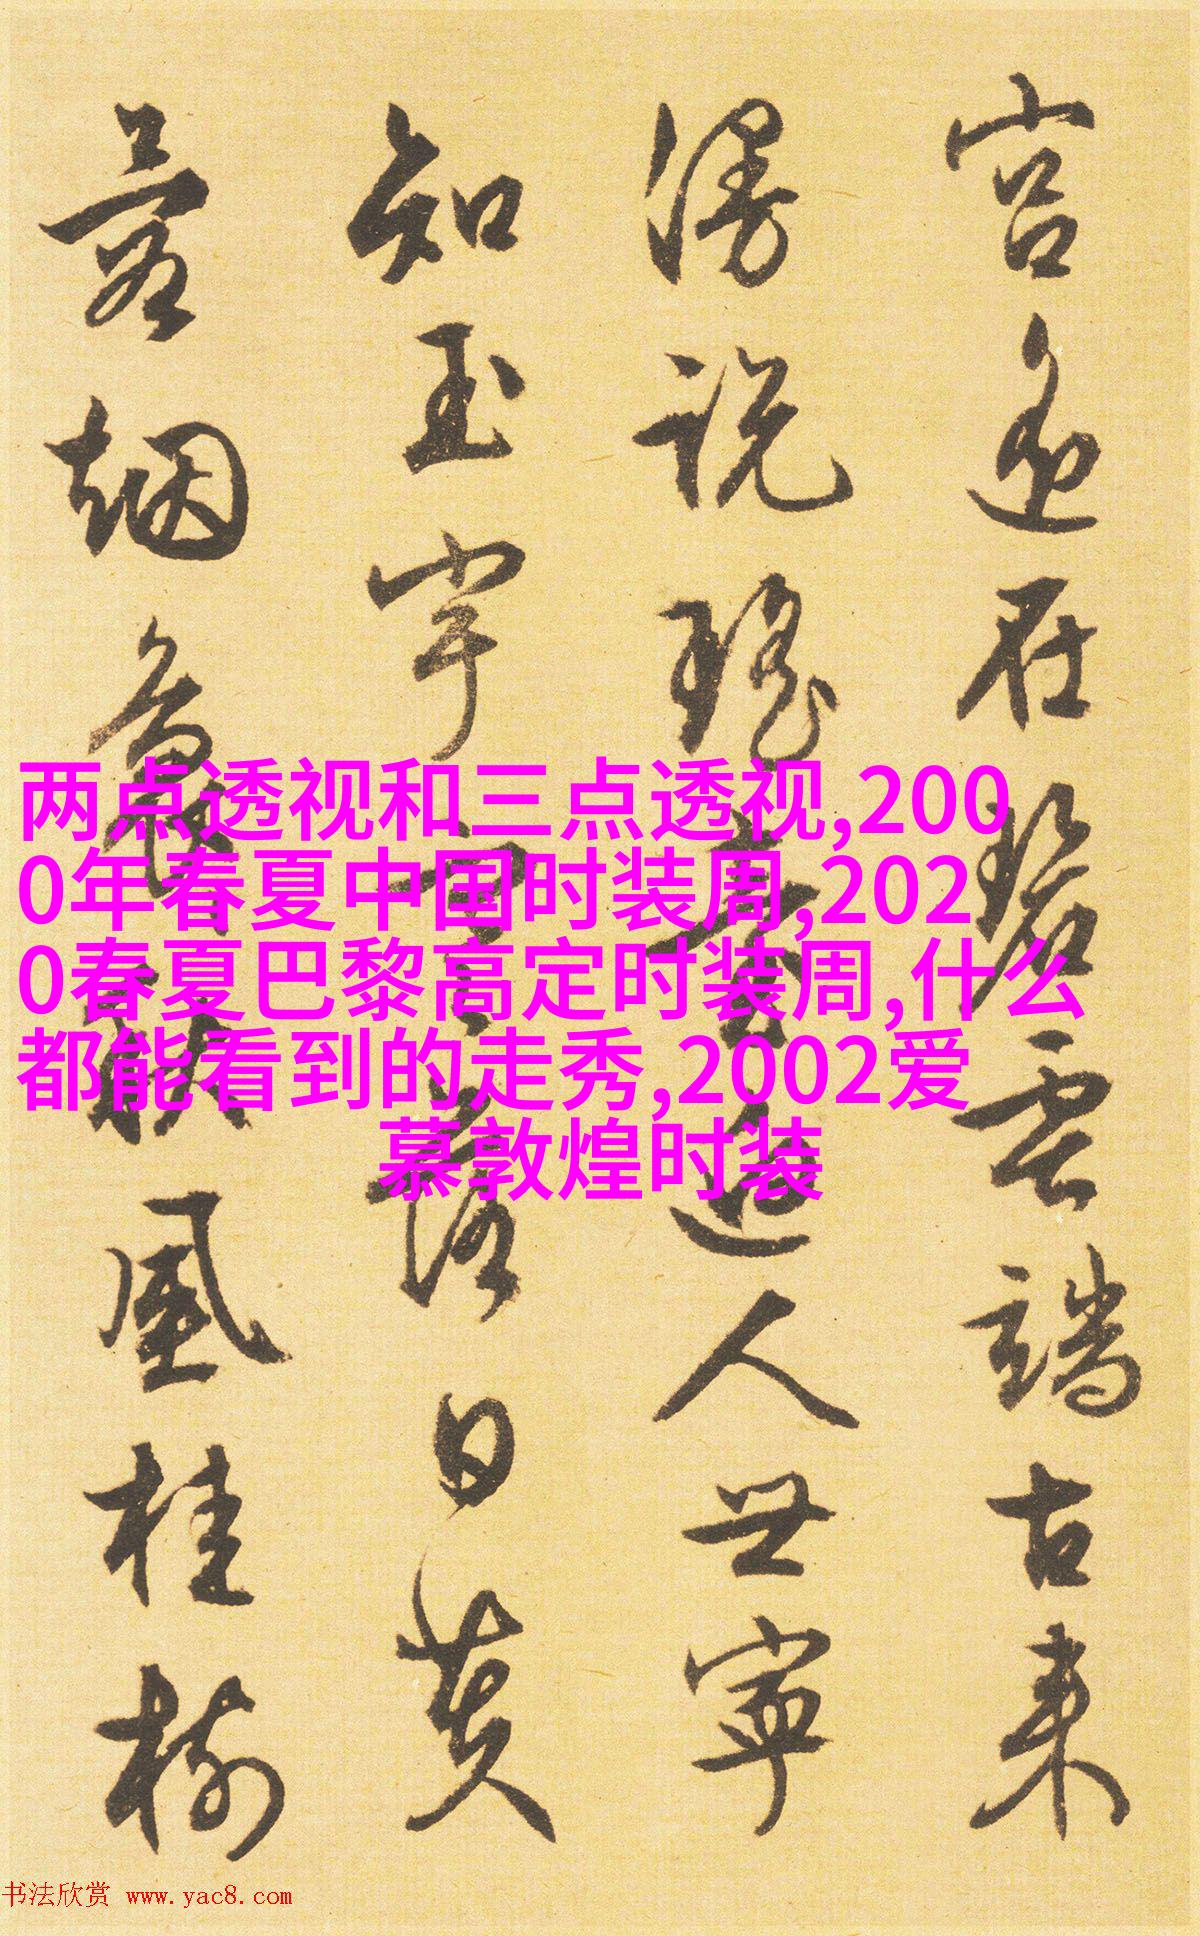 宮迥在碧雲端古来
漫説瑶臺迥人世寧
知玉宇落日黄
烟風桂樹
两点透视和三点透视,200
0年春夏中国时装周,202
0春夏巴黎高定时装周,什么
都能看到的走秀,2002爱
慕敦煌时装
书法欣赏 www.yac8.com